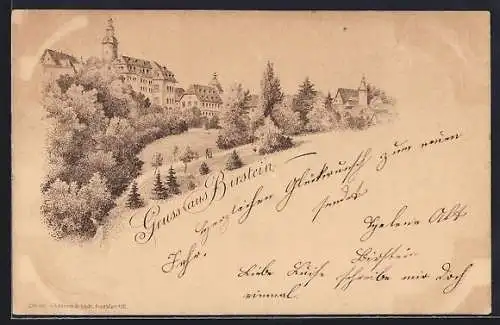 Gruss aus Birstein
Herzlichen Glückwunsch zum neuen
Jahr. sendet
Helene Alt
Birstein
Liebe Luise schreibe mir doch
einmal.